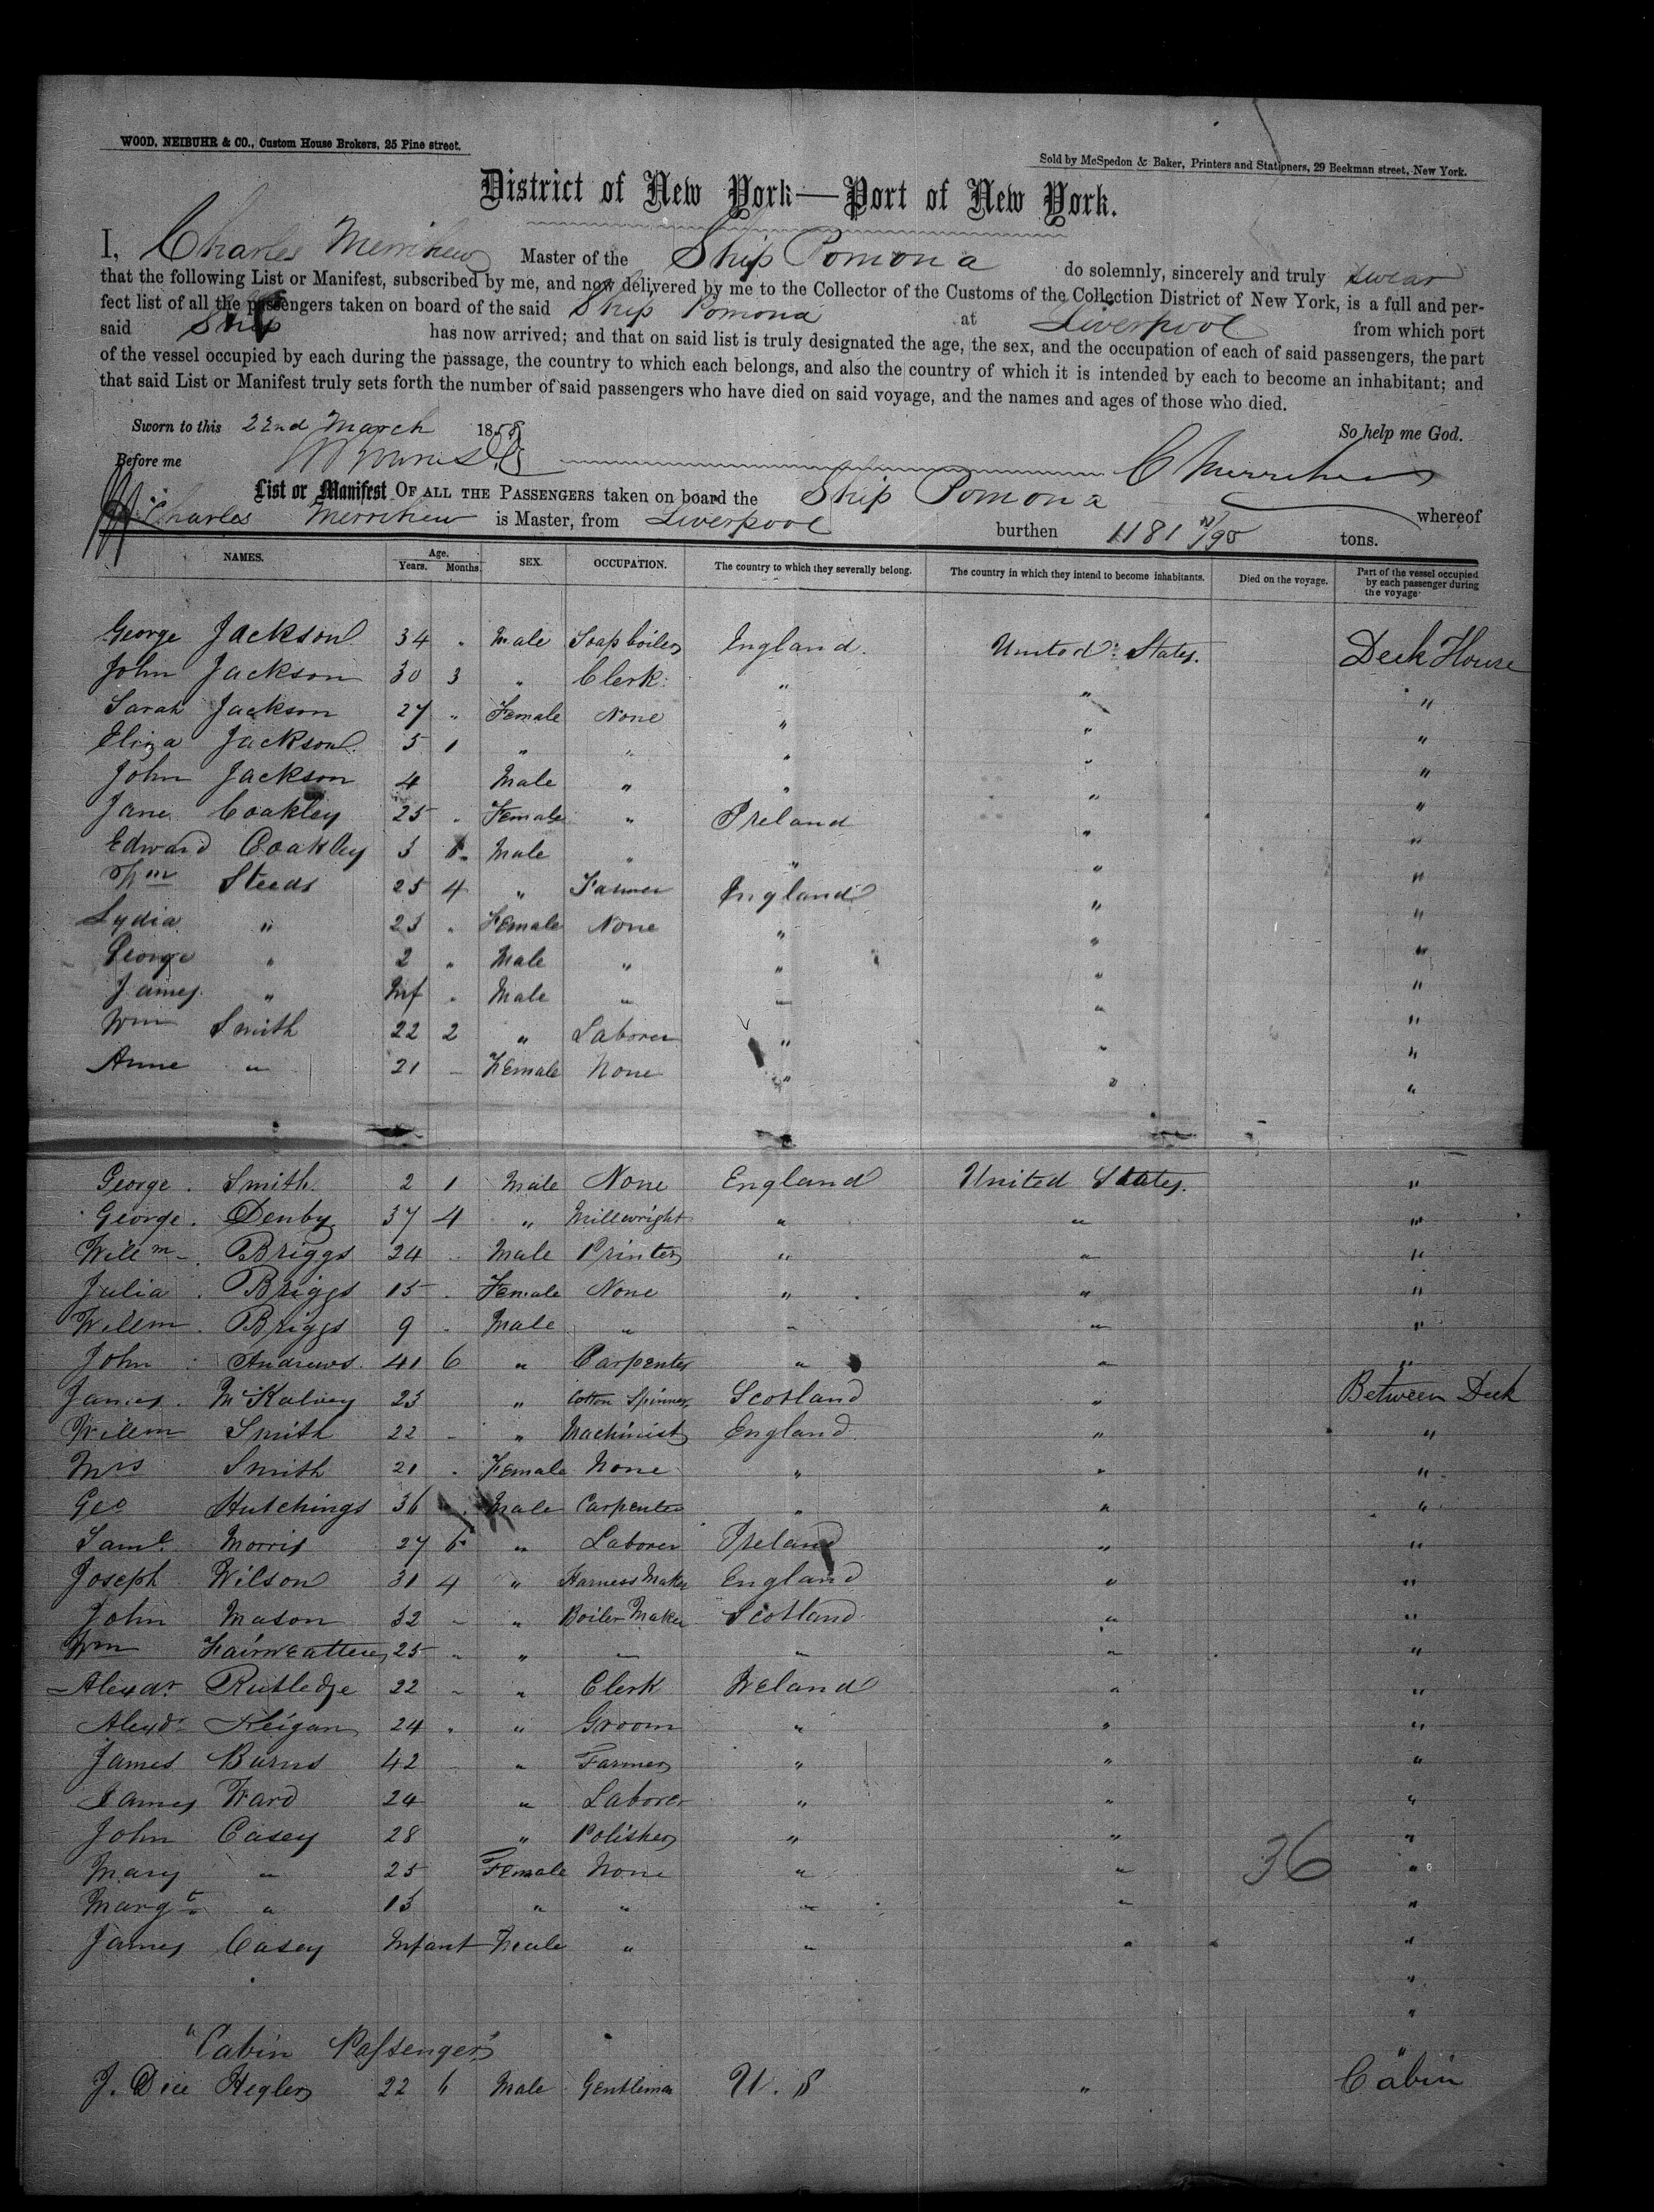 WOOD, NEIBUHR & CO., Custom House Brokers, 25 Pine street.
Sold by McSpedon & Baker, Printers and Stationers, 29 Beekman street, New York.
District of New York—Port of New York.
I, Charles Merrihew Master of the Ship Pomona do solemnly, sincerely and truly swear
that the following List or Manifest, subscribed by me, and now delivered by me to the Collector of the Customs of the Collection District of New York, is a full and per-
fect list of all the passengers taken on board of the said Ship Pomona at Liverpool from which port
said Ship has now arrived; and that on said list is truly designated the age, the sex, and the occupation of each of said passengers, the part
of the vessel occupied by each during the passage, the country to which each belongs, and also the country of which it is intended by each to become an inhabitant; and
that said List or Manifest truly sets forth the number of said passengers who have died on said voyage, and the names and ages of those who died.
Sworn to this 22nd March 1858 So help me God.
Before me C Merrihew
List or Manifest OF ALL THE PASSENGERS taken on board the Ship Pomona whereof
Charles Merrihew is Master, from Liverpool burthen 1181 /95 tons.
NAMES. Age. Years. Months. SEX. OCCUPATION. The country to which they severally belong. The country in which they intend to become inhabitants. Died on the voyage. Part of the vessel occupied by each passenger during the voyage
George Jackson 34 " Male Soap boiler England. United States. Deck House
John Jackson 30 3 " Clerk " " "
Sarah Jackson 27 " Female None " " "
Eliza Jackson 5 1 " " " " "
John Jackson 4 Male " " " "
Jane Coakley 25 " Female " Ireland " "
Edward Coakley 3 Male " " " "
Wm Steeds 25 4 " Farmer England " "
Lydia " 23 " Female None " " "
George " 2 " Male " " " "
James " Inf " Male " " " "
Wm Smith 22 2 " Laborer " " "
Anne " 21 - Female None " " "
George Smith 2 1 Male None England United States. "
George Denby 37 4 " Millwright " " "
Willm Briggs 24 - Male Printer " " "
Julia Briggs 15 - Female None " " "
Willm Briggs 9 - Male " " " "
John Andrews 41 6 " Carpenter " " "
James McKalvey 23 " Cotton Spinner Scotland " Between Deck
Willm Smith 22 - " Machinist England " "
Mrs Smith 21 - Female None " " "
Geo Hutchings 36 Male Carpenter " " "
Saml Morris 27 6 " Laborer Ireland " "
Joseph Wilson 31 4 " Harness Maker England " "
John Mason 32 - " Boiler Maker Scotland " "
Wm Fairweather 25 " " " " " "
Alexdr Rutledge 22 - " Clerk Ireland " "
Alexdr 24 " " Groom " " "
James Burns 42 - " Farmer " " "
James Ward 24 " Laborer " " "
John Casey 28 " Polisher " " "
Mary " 25 Female None " " 36 "
Margt " 13 " " " " "
James Casey Infant Male " " " "
"
"
"Cabin Passenger"
J. Dice Hegler 22 6 Male Gentleman U.S " Cabin